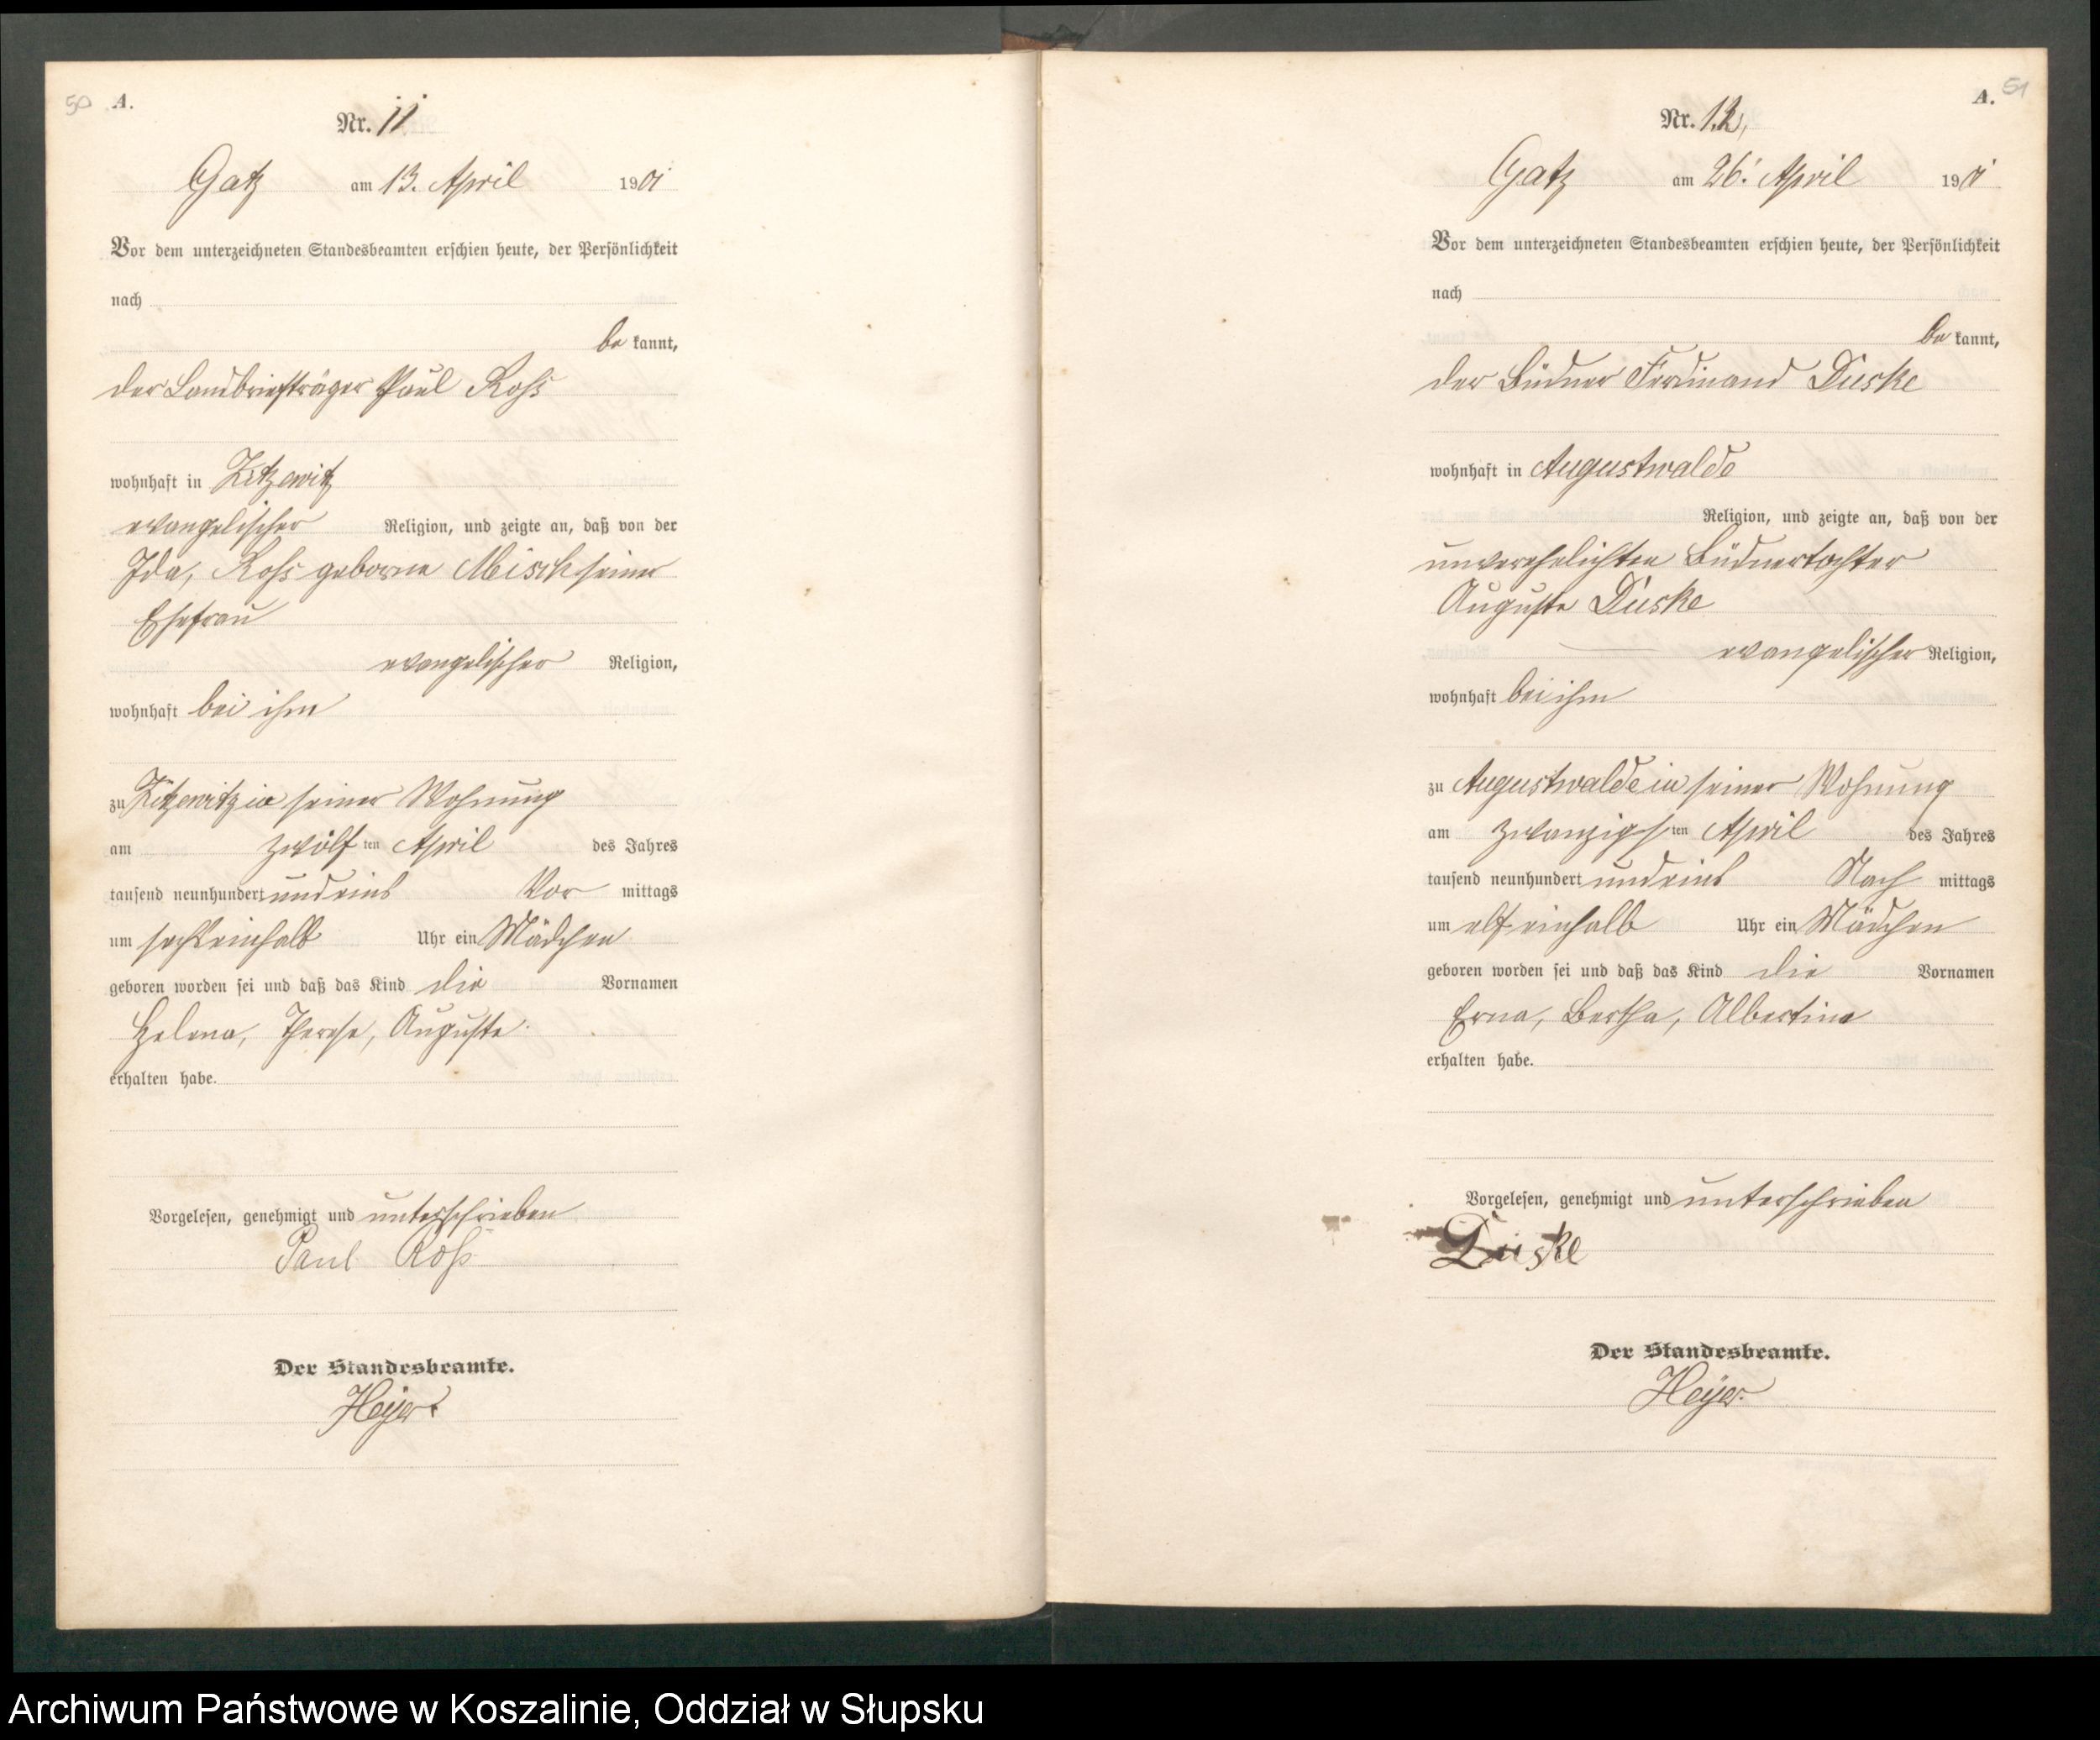 50 A.
Nr. 11
Gatz am 13. April 1901
Vor dem unterzeichneten Standesbeamten erschien heute, der Persönlichkeit
nach
be kannt,
der Landbriefträger Paul Roß
wohnhaft in Zitzewitz
evangelischer Religion, und zeigte an, daß von der
Ida, Roß geborne Misch seiner
Ehefrau
evangelischer Religion,
wohnhaft bei ihm
zu Zitzewitz in seiner Wohnung
am zwölf ten April des Jahres
tausend neunhundert und eins Vor mittags
um sechseinhalb Uhr ein Mädchen
geboren worden sei und daß das Kind die Vornamen
Helena, Therese, Auguste
erhalten habe.
Vorgelesen, genehmigt und unterschrieben
Paul Roß
Der Standesbeamte.
Heyer.
A. 51
Nr. 12,
Gatz am 26. April 1901
Vor dem unterzeichneten Standesbeamten erschien heute, der Persönlichkeit
nach
be kannt,
der Büdner Ferdinand Düske
wohnhaft in Augustwalde
Religion, und zeigte an, daß von der
unverehelichten Büdnertochter
Auguste Düske
evangelischer Religion,
wohnhaft bei ihm
zu Augustwalde in seiner Wohnung
am zwanzigsten April des Jahres
tausend neunhundert und eins Nach mittags
um elfeinhalb Uhr ein Mädchen
geboren worden sei und daß das Kind die Vornamen
Erna, Bertha, Albertine
erhalten habe.
Vorgelesen, genehmigt und unterschrieben
Düske
Der Standesbeamte.
Heyer.
Archiwum Państwowe w Koszalinie, Oddział w Słupsku